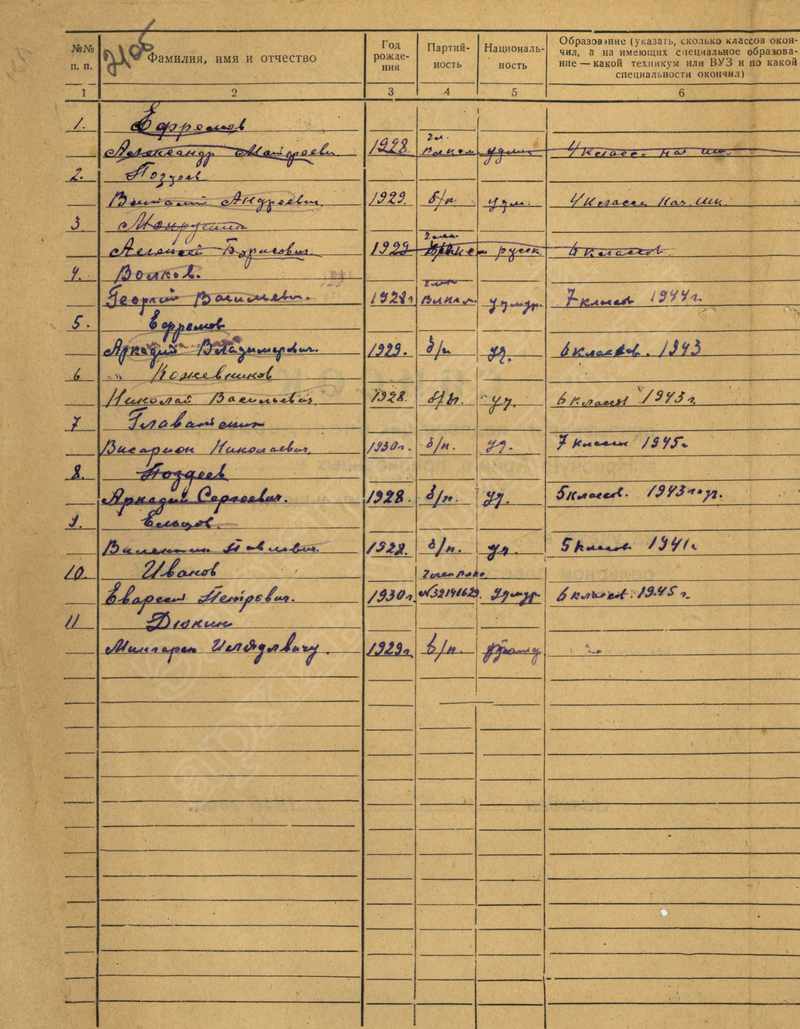 №№ п. п.
Фамилия, имя и отчество
Год рождения
Партийность
Националь-ность
Образование (указать, сколько классов окончил, а на имеющих специальное образование — какой техникум или ВУЗ и по какой специальности окончил)
1 2 3 4 5 6
1. Ефремов
Александр 1928 4 класс. нач. шк.
2. Поздеев
Виталий Андреевич. 1929. б/п. удм. 4 класса нач. шк.
3.
Алексей Борисович. 1929 русск 6 классов
4. Волков.
Георгий Васильевич. 1928г удмур. 7 классов 1944г.
5. Ефремов
Аркадий Владимирович. 1929. б/п уд. 6 классов. 1943
6 Кожевников
Николай Васильевич. 1928. б/п. уд. 6 классов 1943г.
7
Висарион Николаевич. 1930г. б/п. уд. 7 классов 1945г
8. Поздеев
Аркадий Сергеевич. 1928. б/п. уд. 5 классов. 1943
9. Ельцов.
Валентин Павлович. 1928. б/п. уд. 5 классов 1941г
10. Иванов
Петрович. 1930г. №32141629. Удмур. 6 классов. 1945г.
11 Дюкин
1929г. б/п.